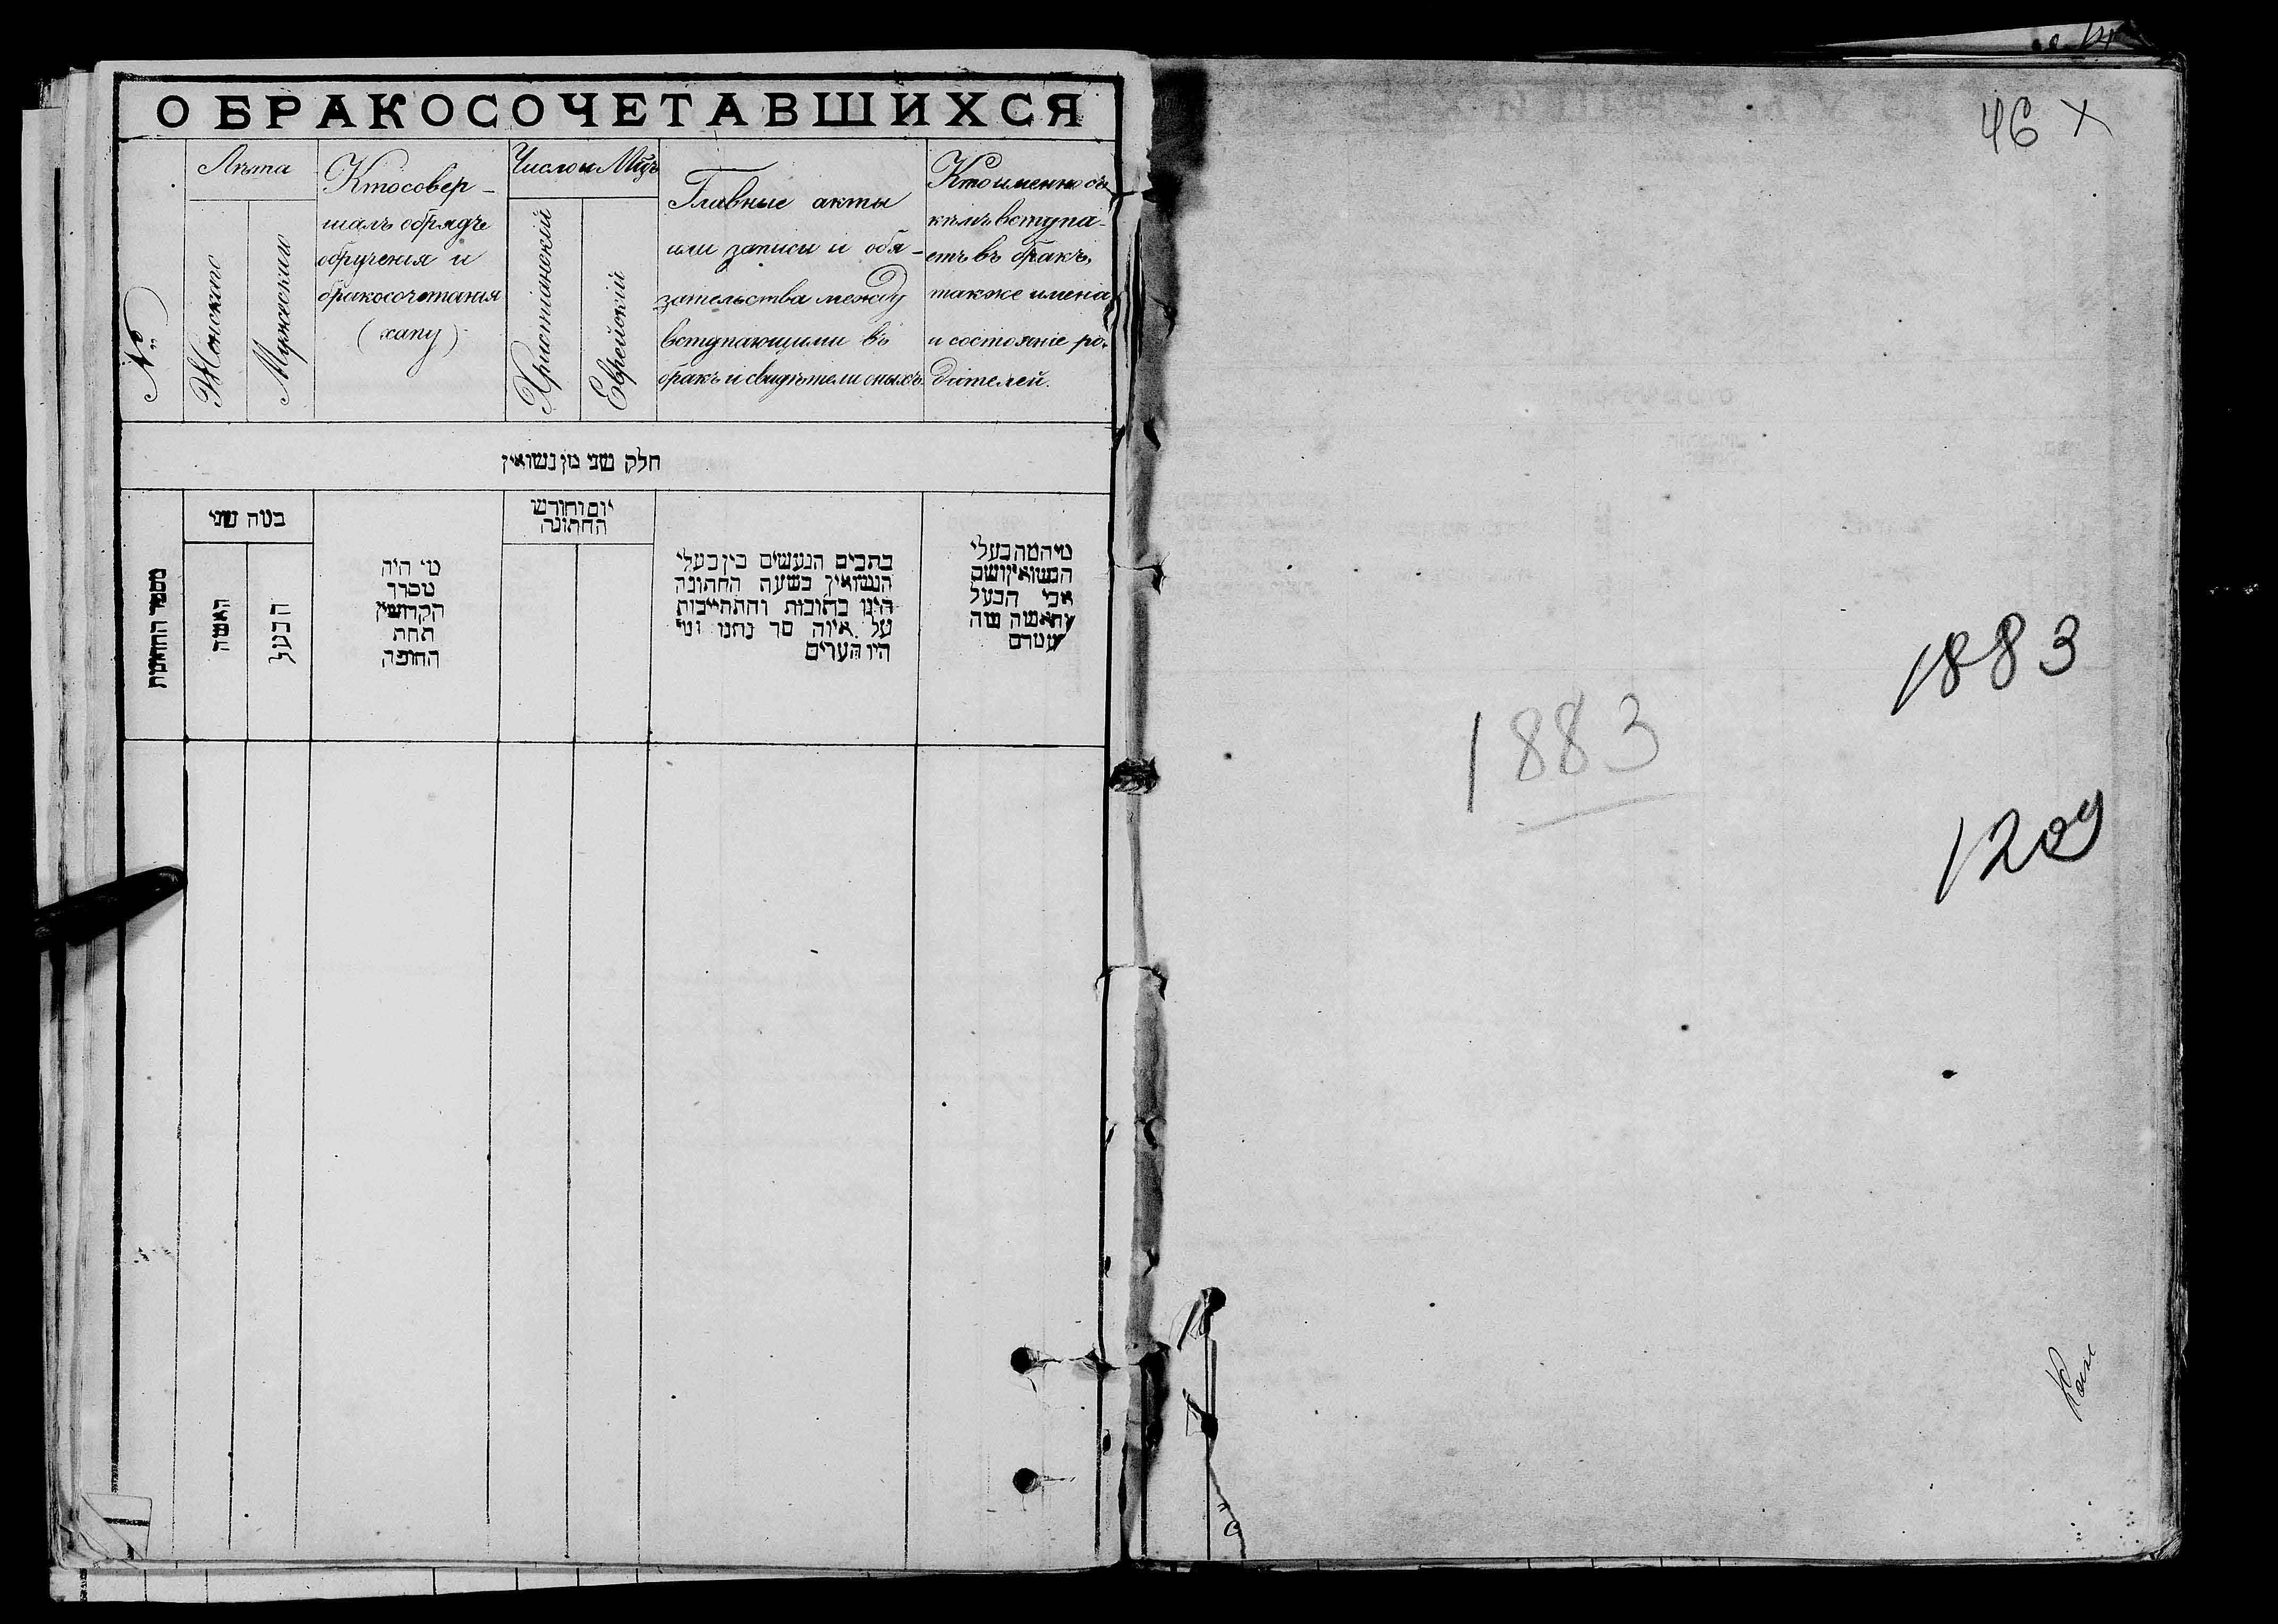 О БРАКОСОЧЕТАВШИХСЯ
№
Лѣта
Женскаго
Мужескаго
Кто совер-
шалъ обрядъ
обрученія и
бракосочетанія
(хапу)
Число и Мцъ
Христіанскій
Еврейскій
Главные акты
или записи и обя-
зательства между
вступающими въ
бракъ и свидѣтели оныхъ
Кто именно съ
кѣмъ вступа-
етъ въ бракъ,
также имена
и состояніе ро-
дителей.
חלק שני מן נשואין
מספר החתונות
במה שני
האשה
הבעל
מי היה
מסדר
הקדושין
תחת
החופה
יום וחודש
החתונה
כתבים הנעשים בין בעלי
הנשואין בשעה החתונה
היינו כתובות והתחייבות
על איזה סך נתנו ומי
היו העדים
מי המה בעלי
הנשואין ושם
אבי הבעל
והאשה מה
מעמדם
46 X
1883
1883
1209